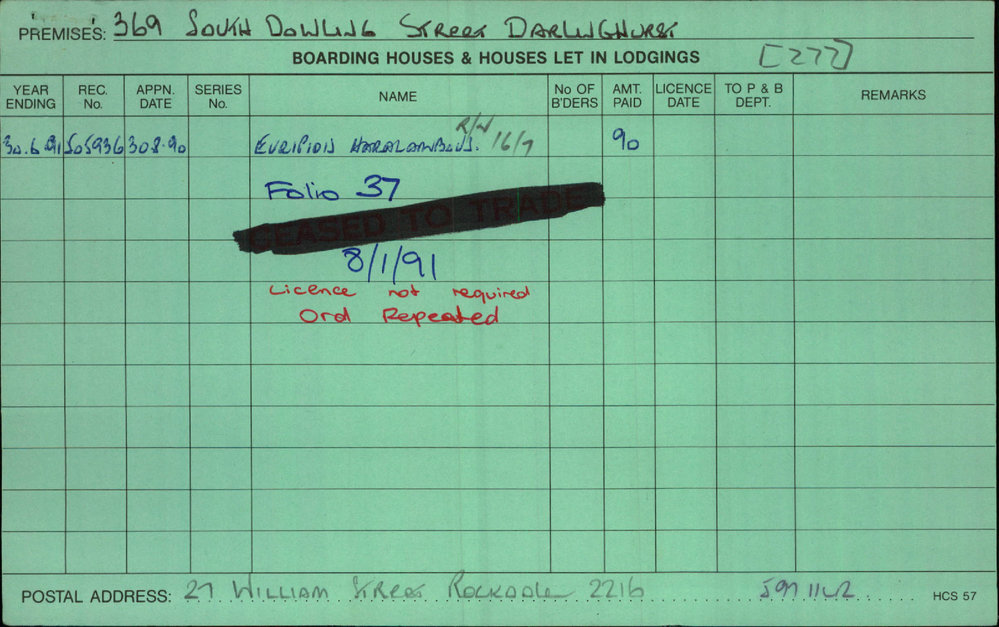 PREMISES: 369 SOUTH DOWLING STREET DARLINGHURST
BOARDING HOUSES & HOUSES LET IN LODGINGS [277]
YEAR ENDING REC. No. APPN. DATE SERIES No. NAME No OF B'DERS AMT. PAID LICENCE DATE TO P & B DEPT. REMARKS
30.6.91 505936 30.8.90 HARALAMBOUS. 16/7 90
Folio 37
CEASED TO TRADE
8/1/91
Licence not required
Ord Repealed
POSTAL ADDRESS: 27 WILLIAM STREET ROCKDALE 2216
HCS 57